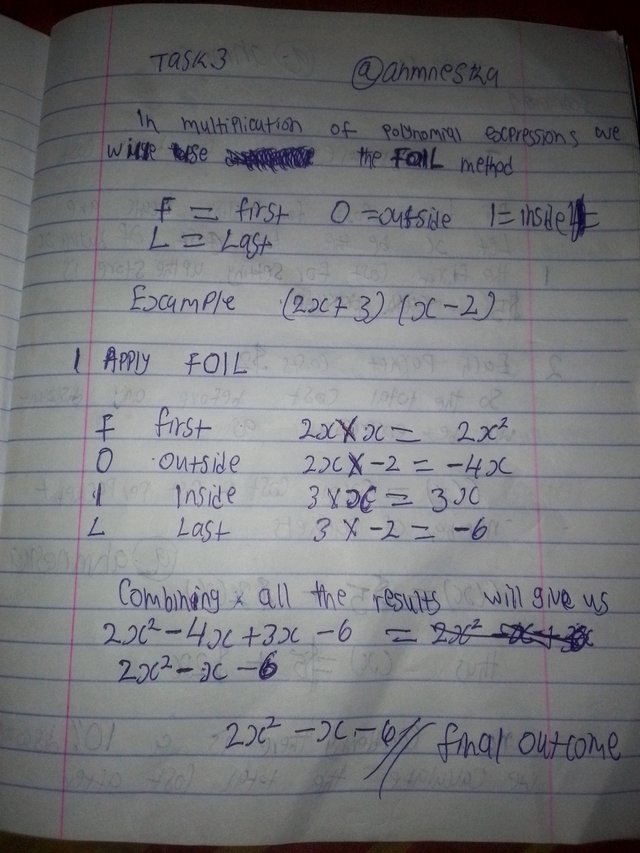 TASK 3 @ahmneska
In multiplication of polynomial expressions we
will use the FOIL method
F = first O = outside I = inside
L = Last
Example (2x+3) (x-2)
1 APPLY FOIL
F first 2x × x = 2x²
O outside 2x × -2 = -4x
I Inside 3 × x = 3x
L Last 3 × -2 = -6
Combining all the results will give us
2x² - 4x + 3x - 6 =
2x² - x - 6
2x² - x - 6 // final outcome